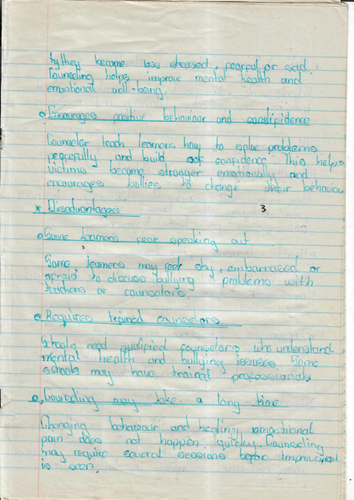 they become less stressed, fearful or sad.
Counseling helps improve mental health and
emotional well-being.
Encourages positive behaviour and confidence
Counselor teach learners how to solve problems
peacefully and build confidence. This helps
victims become stronger emotionally and
encourages bullies to change their behaviour
* Disadvantages
3
Some learners fear speaking out
Some learners may feel shy, embarrassed or
afraid to discuss bullying problems with
teachers or counselors.
Requires trained counselors
Schools need qualified counselors who understand
mental health and bullying issues. Some
schools may have trained professionals
Counseling may take a long time
Changing behaviour and healing emotional
pain does not happen quickly. Counseling
may require several sessions before improvement
is seen.